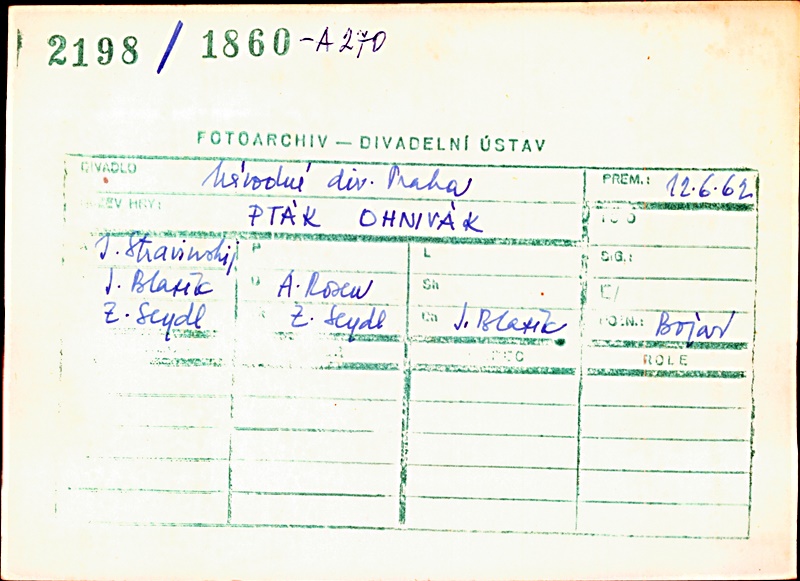 2198 / 1860 - A 270
FOTOARCHIV — DIVADELNÍ ÚSTAV
DIVADLO Národní div. Praha PREM.: 12.6.62
NÁZEV HRY: PTÁK OHNIVÁK
A I. Stravinskij P L SIG.:
J. Blažík A. Rosen Sh
Z. Seydl Z. Seydl Ch J. Blažík POZN.: Bojar
ROLE